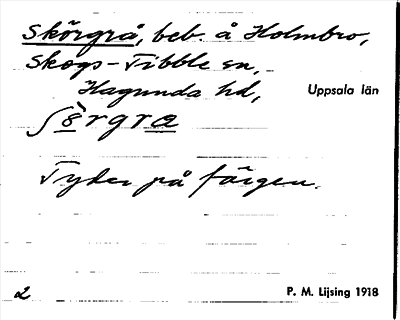 Skörgrå, beb. å Holmbro,
Skogs-Tibble sn,
Hagunda hd, Uppsala län
Tyder på färgen.
2 P. M. Lijsing 1918